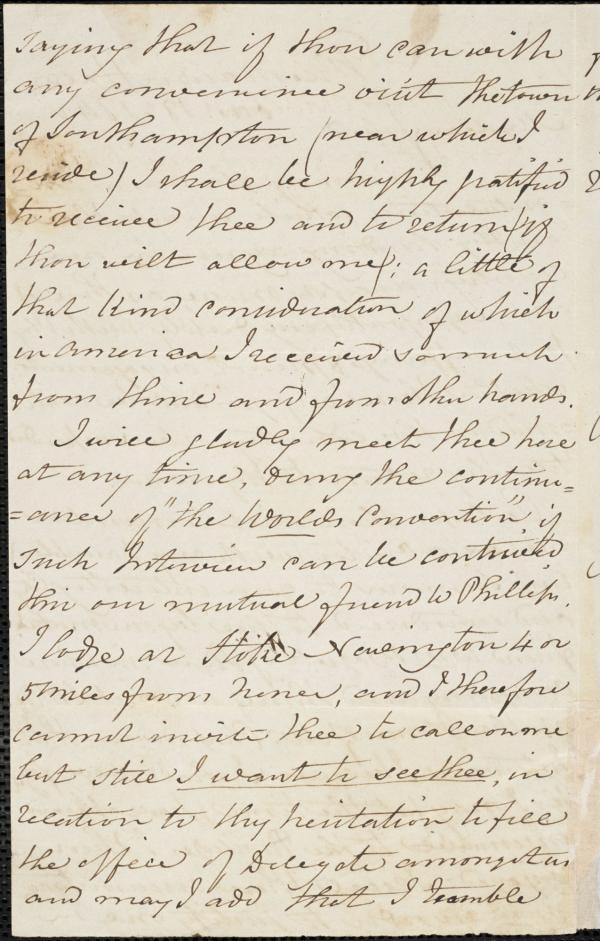 saying that if thou can with
any convenience visit the town
of Southampton (near which I
reside) I shall be highly gratified
to receive thee and to return (if
thou wilt allow me); a little of
that kind consideration of which
in America I received so much
from thine and from other hands.
I will gladly meet thee here
at any time, during the continu=
=ance of "the Worlds Convention" if
such Interview can be contrived
thro our mutual friend W Phillips.
I lodge at Stoke Newington 4 or
5 miles from hence, and I therefore
cannot invite thee to call on me
but still I want to see thee, in
relation to thy hesitation to fill
the office of Delegate amongst us
and may I add that I tremble